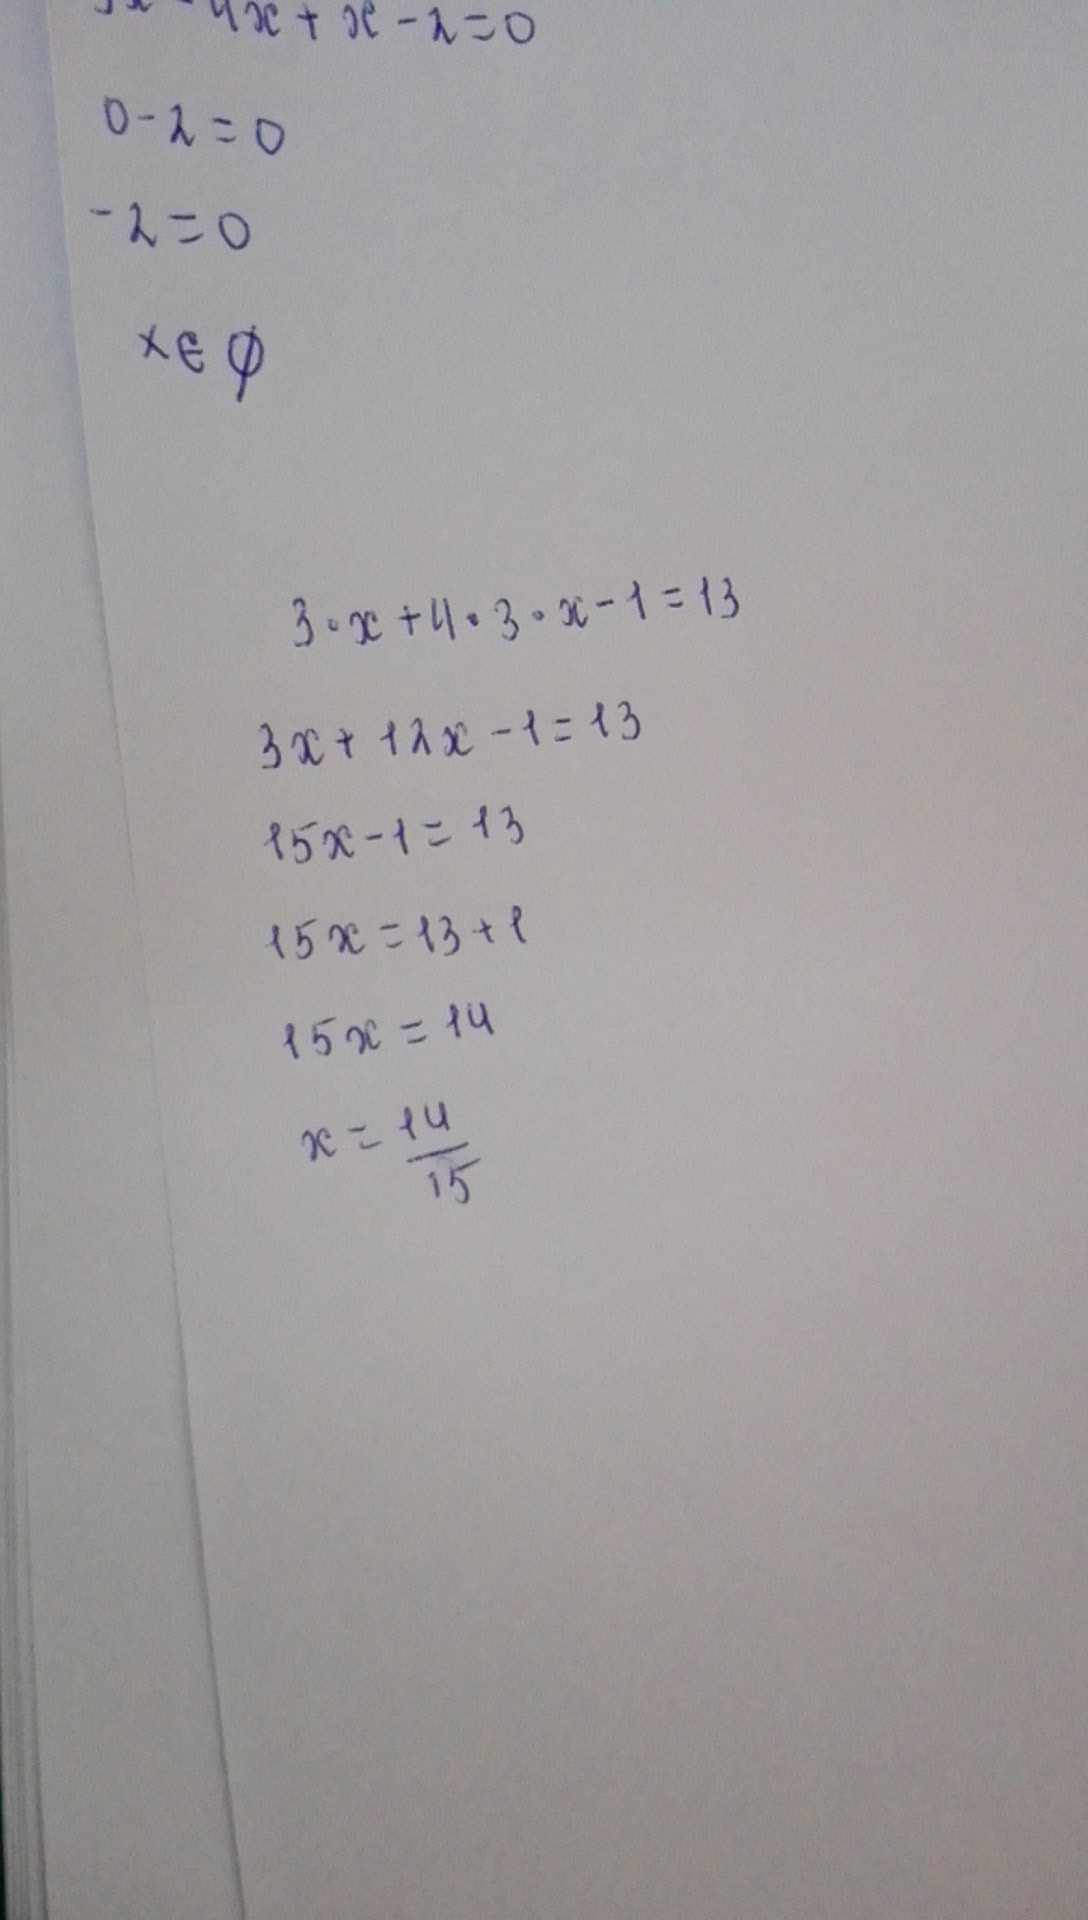 3x - 4x + x - 2 = 0
0 - 2 = 0
- 2 = 0
x ∈ ∅
3 · x + 4 · 3 · x - 1 = 13
3x + 12x - 1 = 13
15x - 1 = 13
15x = 13 + 1
15x = 14
x = 14/15